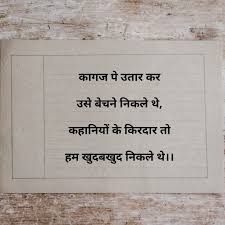 कागज पे उतार कर
उसे बेचने निकले थे,
कहानियों के किरदार तो
हम खुदबखुद निकले थे।।